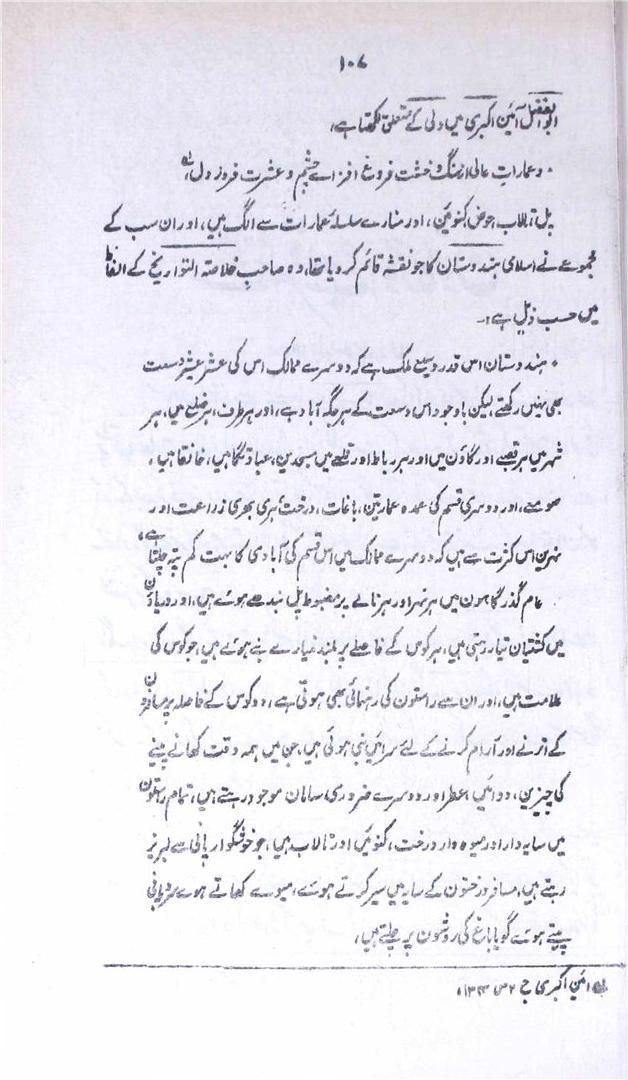 ۱۰۷
ابوالفضل آئین اکبری میں دلی کے متعلق لکھتا ہے،
"و عمارات عالی از سنگ و خشت فروغ افزاے چشم و عشرت فروز دل،" لہ
پل، تالاب، حوض، کنوئین، اور منارے سلسلۂ عمارات سے الگ ہیں، اور ان سب کے
مجموعے نے اسلامی ہندوستان کا جو نقشہ قائم کر دیا تھا، وہ صاحب خلاصۃ التواریخ کے الفاظ
میں حسب ذیل ہے:۔
"ہندوستان اس قدر وسیع ملک ہے کہ دوسرے ممالک اس کی عشر عشیر وسعت
بھی نہیں رکھتے، لیکن باوجود اس وسعت کے ہر جگہ آباد ہے، اور ہر طرف، ہر ضلع میں، ہر
شہر میں ہر قصبے اور گاؤن میں اور ہر رباط اور قلعے میں مسجدین، عبادتگاہیں، خانقاہیں،
صومعے، اور دوسری قسم کی عمدہ عمارتین، باغات، درخت، ہری بھری زراعت اور
نہرین اس کثرت سے ہیں کہ دوسرے ممالک میں اس قسم کی آبادی کا بہت کم پتہ چلتا ہے،
عام گذرگاہون میں ہر نہر اور ہر نالے پر مضبوط پل بندھے ہوئے ہیں، اور دریاؤن
میں کشتیان تیار رہتی ہیں، ہر کوس کے فاصلے پر بلند منارے بنے ہوئے ہیں، جو کوس کی
علامت ہیں، اور ان سے راستون کی رہنمائی بھی ہوتی ہے، دو کوس کے فاصلہ پر مسافرون
کے اترنے اور آرام کرنے کے لئے سرائیں بنی ہوئی ہیں، جن میں ہمہ وقت کھانے پینے
کی چیزین، دوائیں، عطر اور دوسرے ضروری سامان موجود رہتے ہیں، تمام راستون
میں سایہ دار اور میوہ دار درخت، کنوئیں اور تالاب ہیں، جو خوشگوار پانی سے لبریز
رہتے ہیں، مسافر درختون کے سایہ میں سیر کرتے ہوئے، میوے کھاتے ہوے، سرد پانی
پیتے ہوئے گویا باغ کی روشون پر چلتے ہیں،
لہ آئین اکبری ج ۲ ص ۱۳۴،